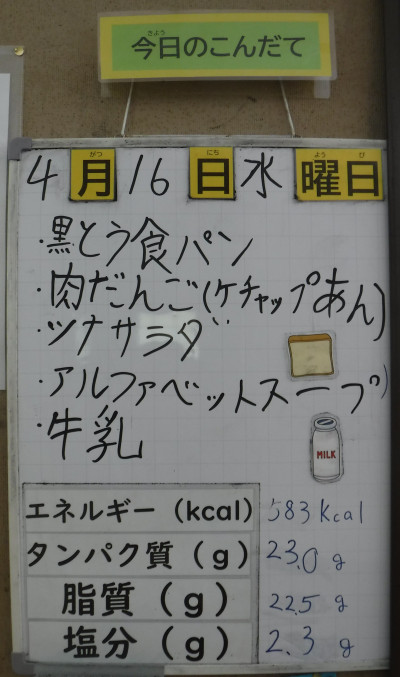 今日のこんだて
4月16日水曜日
・黒とう食パン
・肉だんご(ケチャップあん)
・ツナサラダ
・アルファベットスープ
・牛乳
MILK
エネルギー(kcal) 583 kcal
タンパク質(g) 23.0 g
脂質(g) 22.5 g
塩分(g) 2.3 g